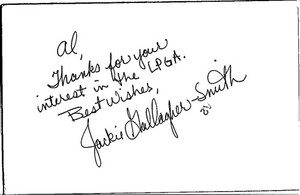 Al,
Thanks for your
interest in the LPGA.
Best Wishes,
Jackie Gallagher-Smith